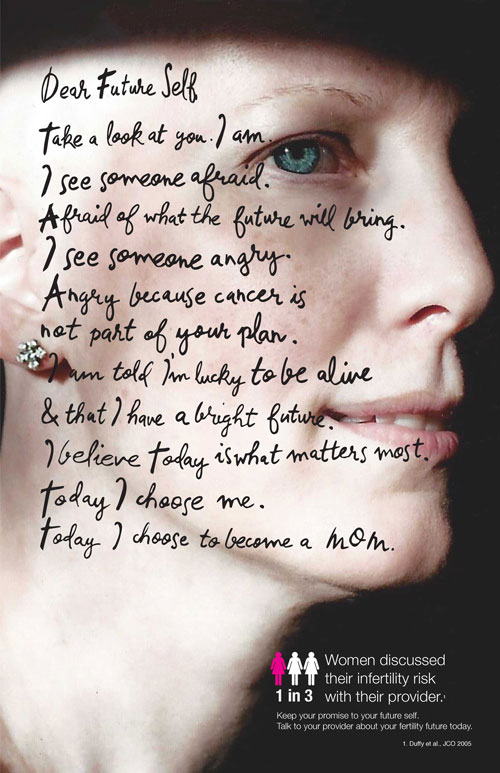 Dear Future Self
Take a look at you. I am.
I see someone afraid.
Afraid of what the future will bring.
I see someone angry.
Angry because cancer is
not part of your plan.
I am told I'm lucky to be alive
& that I have a bright future.
I believe today is what matters most.
Today I choose me.
Today I choose to become a MOM.
1 in 3
Women discussed
their infertility risk
with their provider.¹
Keep your promise to your future self.
Talk to your provider about your fertility future today.
1. Duffy et al., JCO 2005